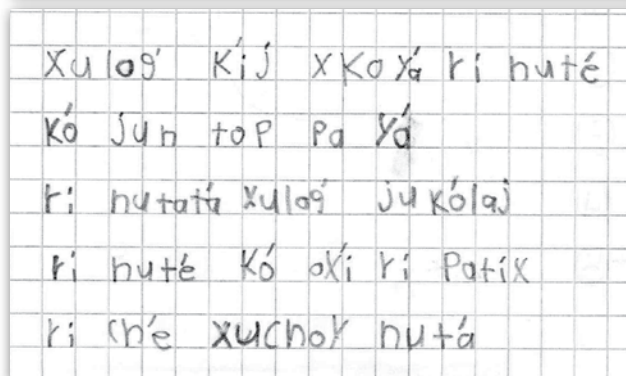 xuloq' k'ij xkoyá ri nuté
k'ó jun top pa yá
ri nutatá xuloq' juk'ólaj
ri nuté k'ó oxí ri patíx
ri ch'e xuchoy nutá